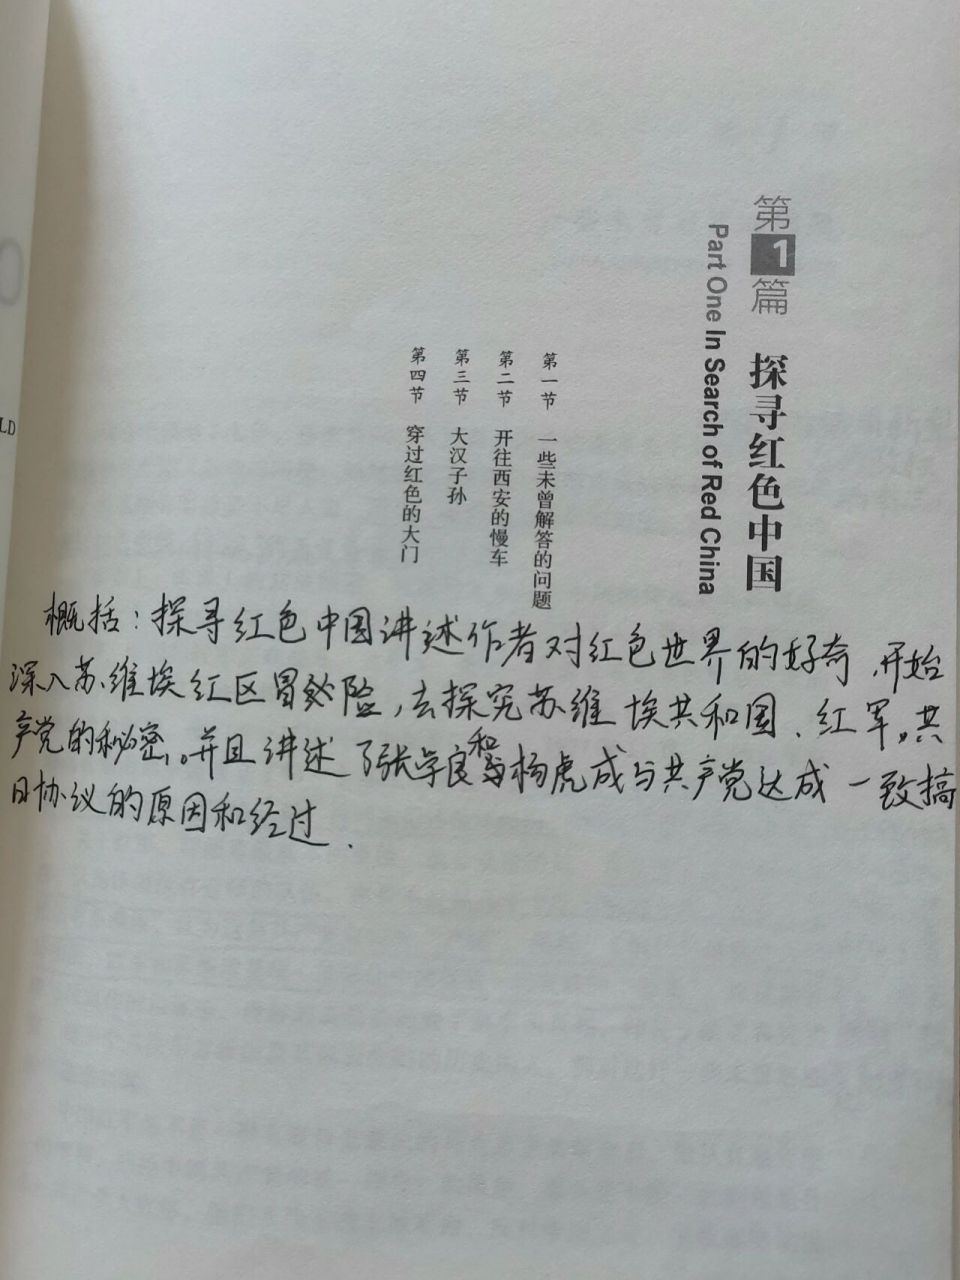 第1篇 探寻红色中国
Part One In Search of Red China
第一节 一些未曾解答的问题
第二节 开往西安的慢车
第三节 大汉子孙
第四节 穿过红色的大门
LD
概括：探寻红色中国讲述作者对红色世界的好奇，开始
深入苏维埃红区冒险，去探究苏维埃共和国、红军、共
产党的秘密。并且讲述了张学良和杨虎成与共产党达成一致搞
日协议的原因和经过.